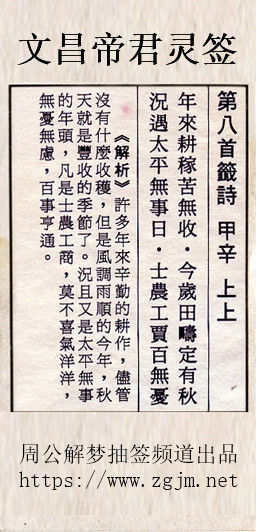 文昌帝君灵签
第八首籤詩 甲辛 上上
年來耕稼苦無收·今歲田疇定有秋
況遇太平無事日·士農工賈百無憂
《解析》許多年來辛勤的耕作，儘管
沒有什麼收穫，但是風調雨順的今年，秋
天就是豐收的季節了。況且又是太平無事
的年頭，凡是士農工商，莫不喜氣洋洋，
無憂無慮，百事亨通。
周公解梦抽签频道出品
https://www.zgjm.net